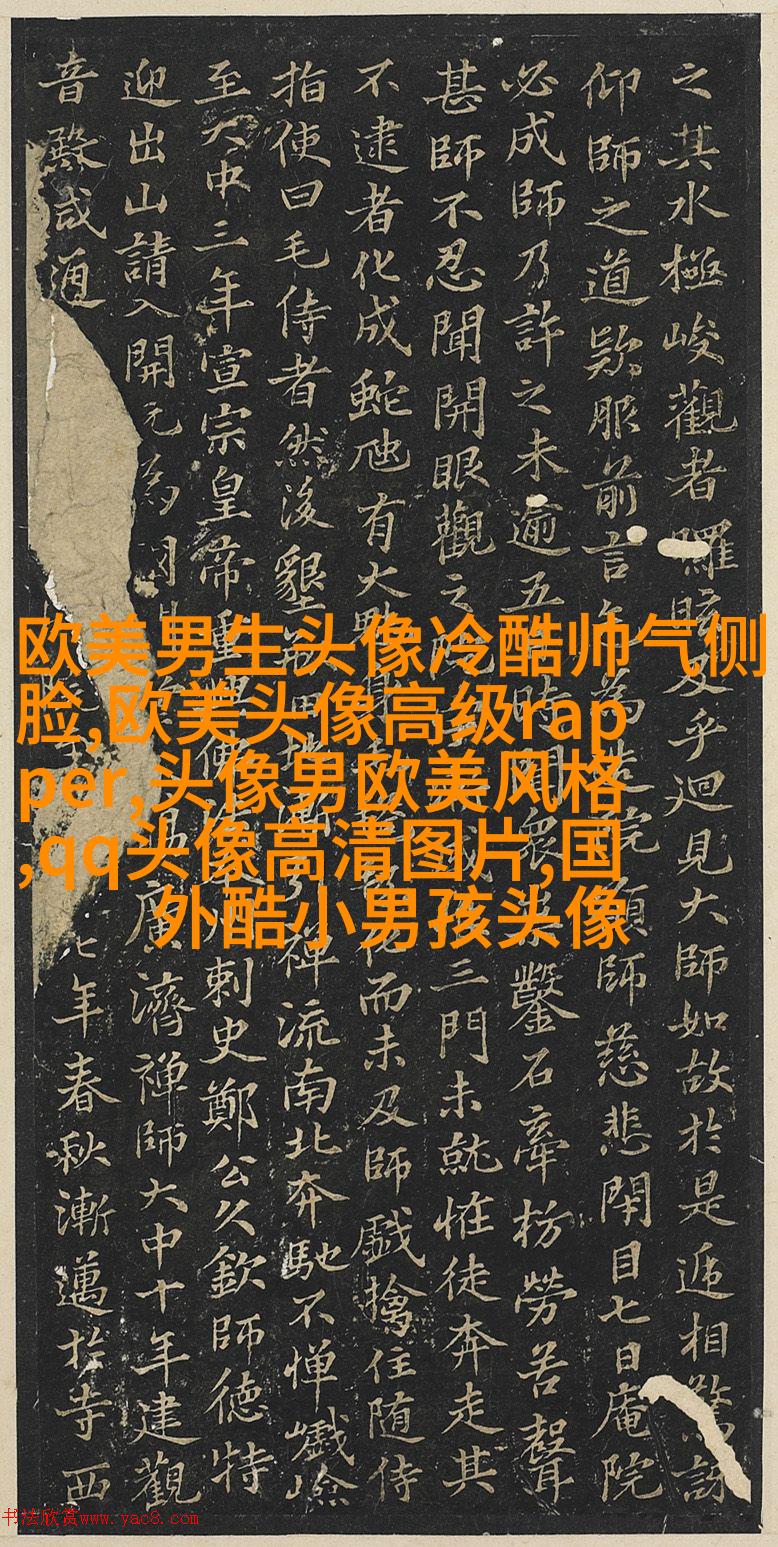 之其水極峻觀者乎迴見大師如故於是遞相驚訝
仰師之道歎服前言為造院願師慈悲閉目七日庵院
必成師乃許之未逾五時聞眾鑿石牽枋勞苦聲
甚師不忍聞開眼觀之院三門未就惟徒奔走其
不逮者化成蛇虺有大而未及師戲擒住随侍
指使曰毛侍者然後墾禅流南北奔馳不憚巇嶮
至大中三年宣宗皇帝重刺史鄭公久欽師德特
迎出山請入開元為國廣濟禅師大中十年建觀
音殿咸通七年春秋漸邁於寺西
欧美男生头像冷酷帅气侧
脸,欧美头像高级rap
per,头像男欧美风格
,qq头像高清图片,国
外酷小男孩头像
书法欣赏www.yac8.com